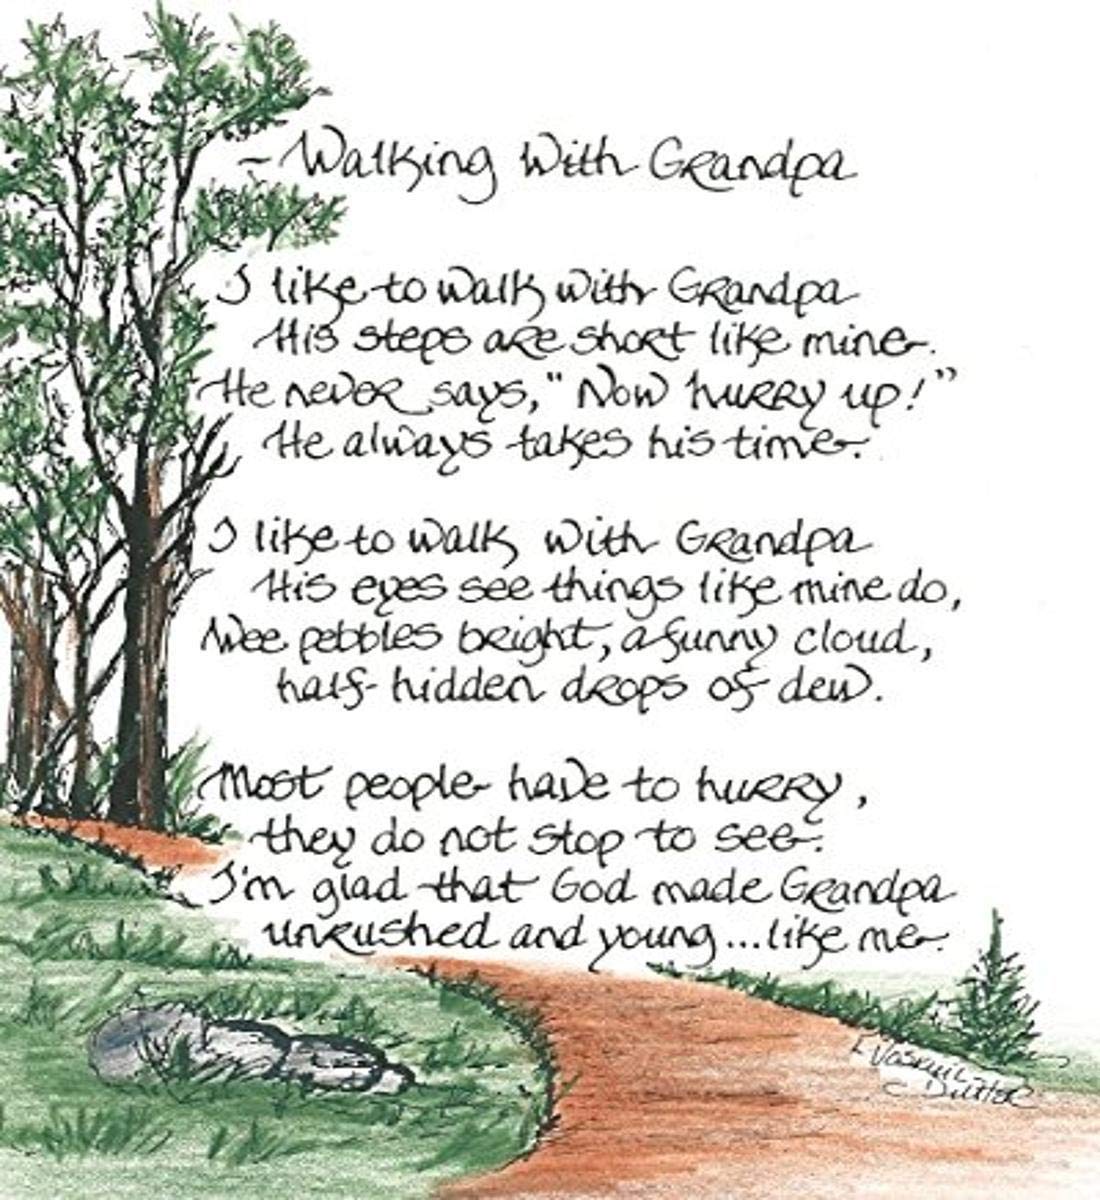 ~Walking With Grandpa
I like to walk with Grandpa
His steps are short like mine.
He never says, "Now hurry up!"
He always takes his time.
I like to walk with Grandpa
His eyes see things like mine do,
Wee pebbles bright, a funny cloud,
half-hidden drops of dew.
Most people have to hurry,
they do not stop to see.
I'm glad that God made Grandpa
unrushed and young...like me.